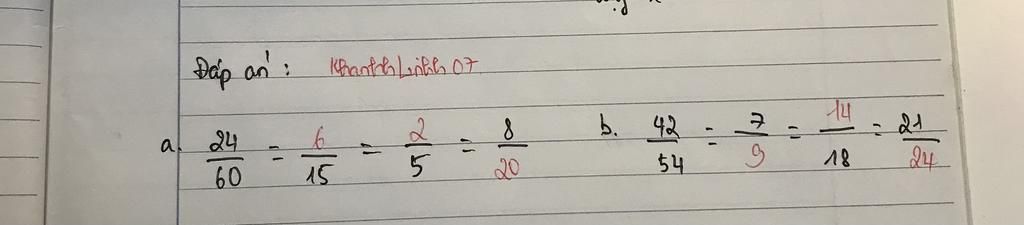 Đáp án: KhanhLinh07
a. 24/60 = 6/15 = 2/5 = 8/20 b. 42/54 = 7/9 = 14/18 = 21/24